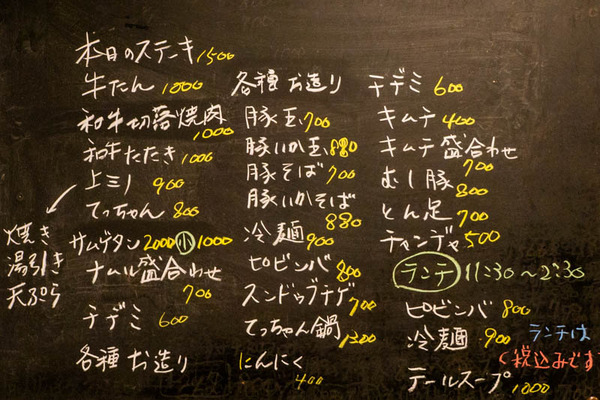 本日のステーキ 1500
牛たん 1000
和牛切落焼肉 1000
和牛たたき 1000
上ミノ 900
焼き
湯引き
天ぷら
てっちゃん 800
サムゲタン 2000 小 1000
ナムル盛合わせ 700
チヂミ 600
各種お造り
各種お造り
豚玉 700
豚いか玉 880
豚そば 700
豚いかそば 880
冷麺 900
ピビンバ 800
スンドゥブチゲ 700
てっちゃん鍋 1300
にんにく 400
チヂミ 600
キムチ 400
キムチ盛合わせ 700
むし豚 800
とん足 700
チャンヂャ 500
ランチ 11:30〜2:30
ピビンバ 800
冷麺 900
テールスープ 1000
ランチは
税込みです